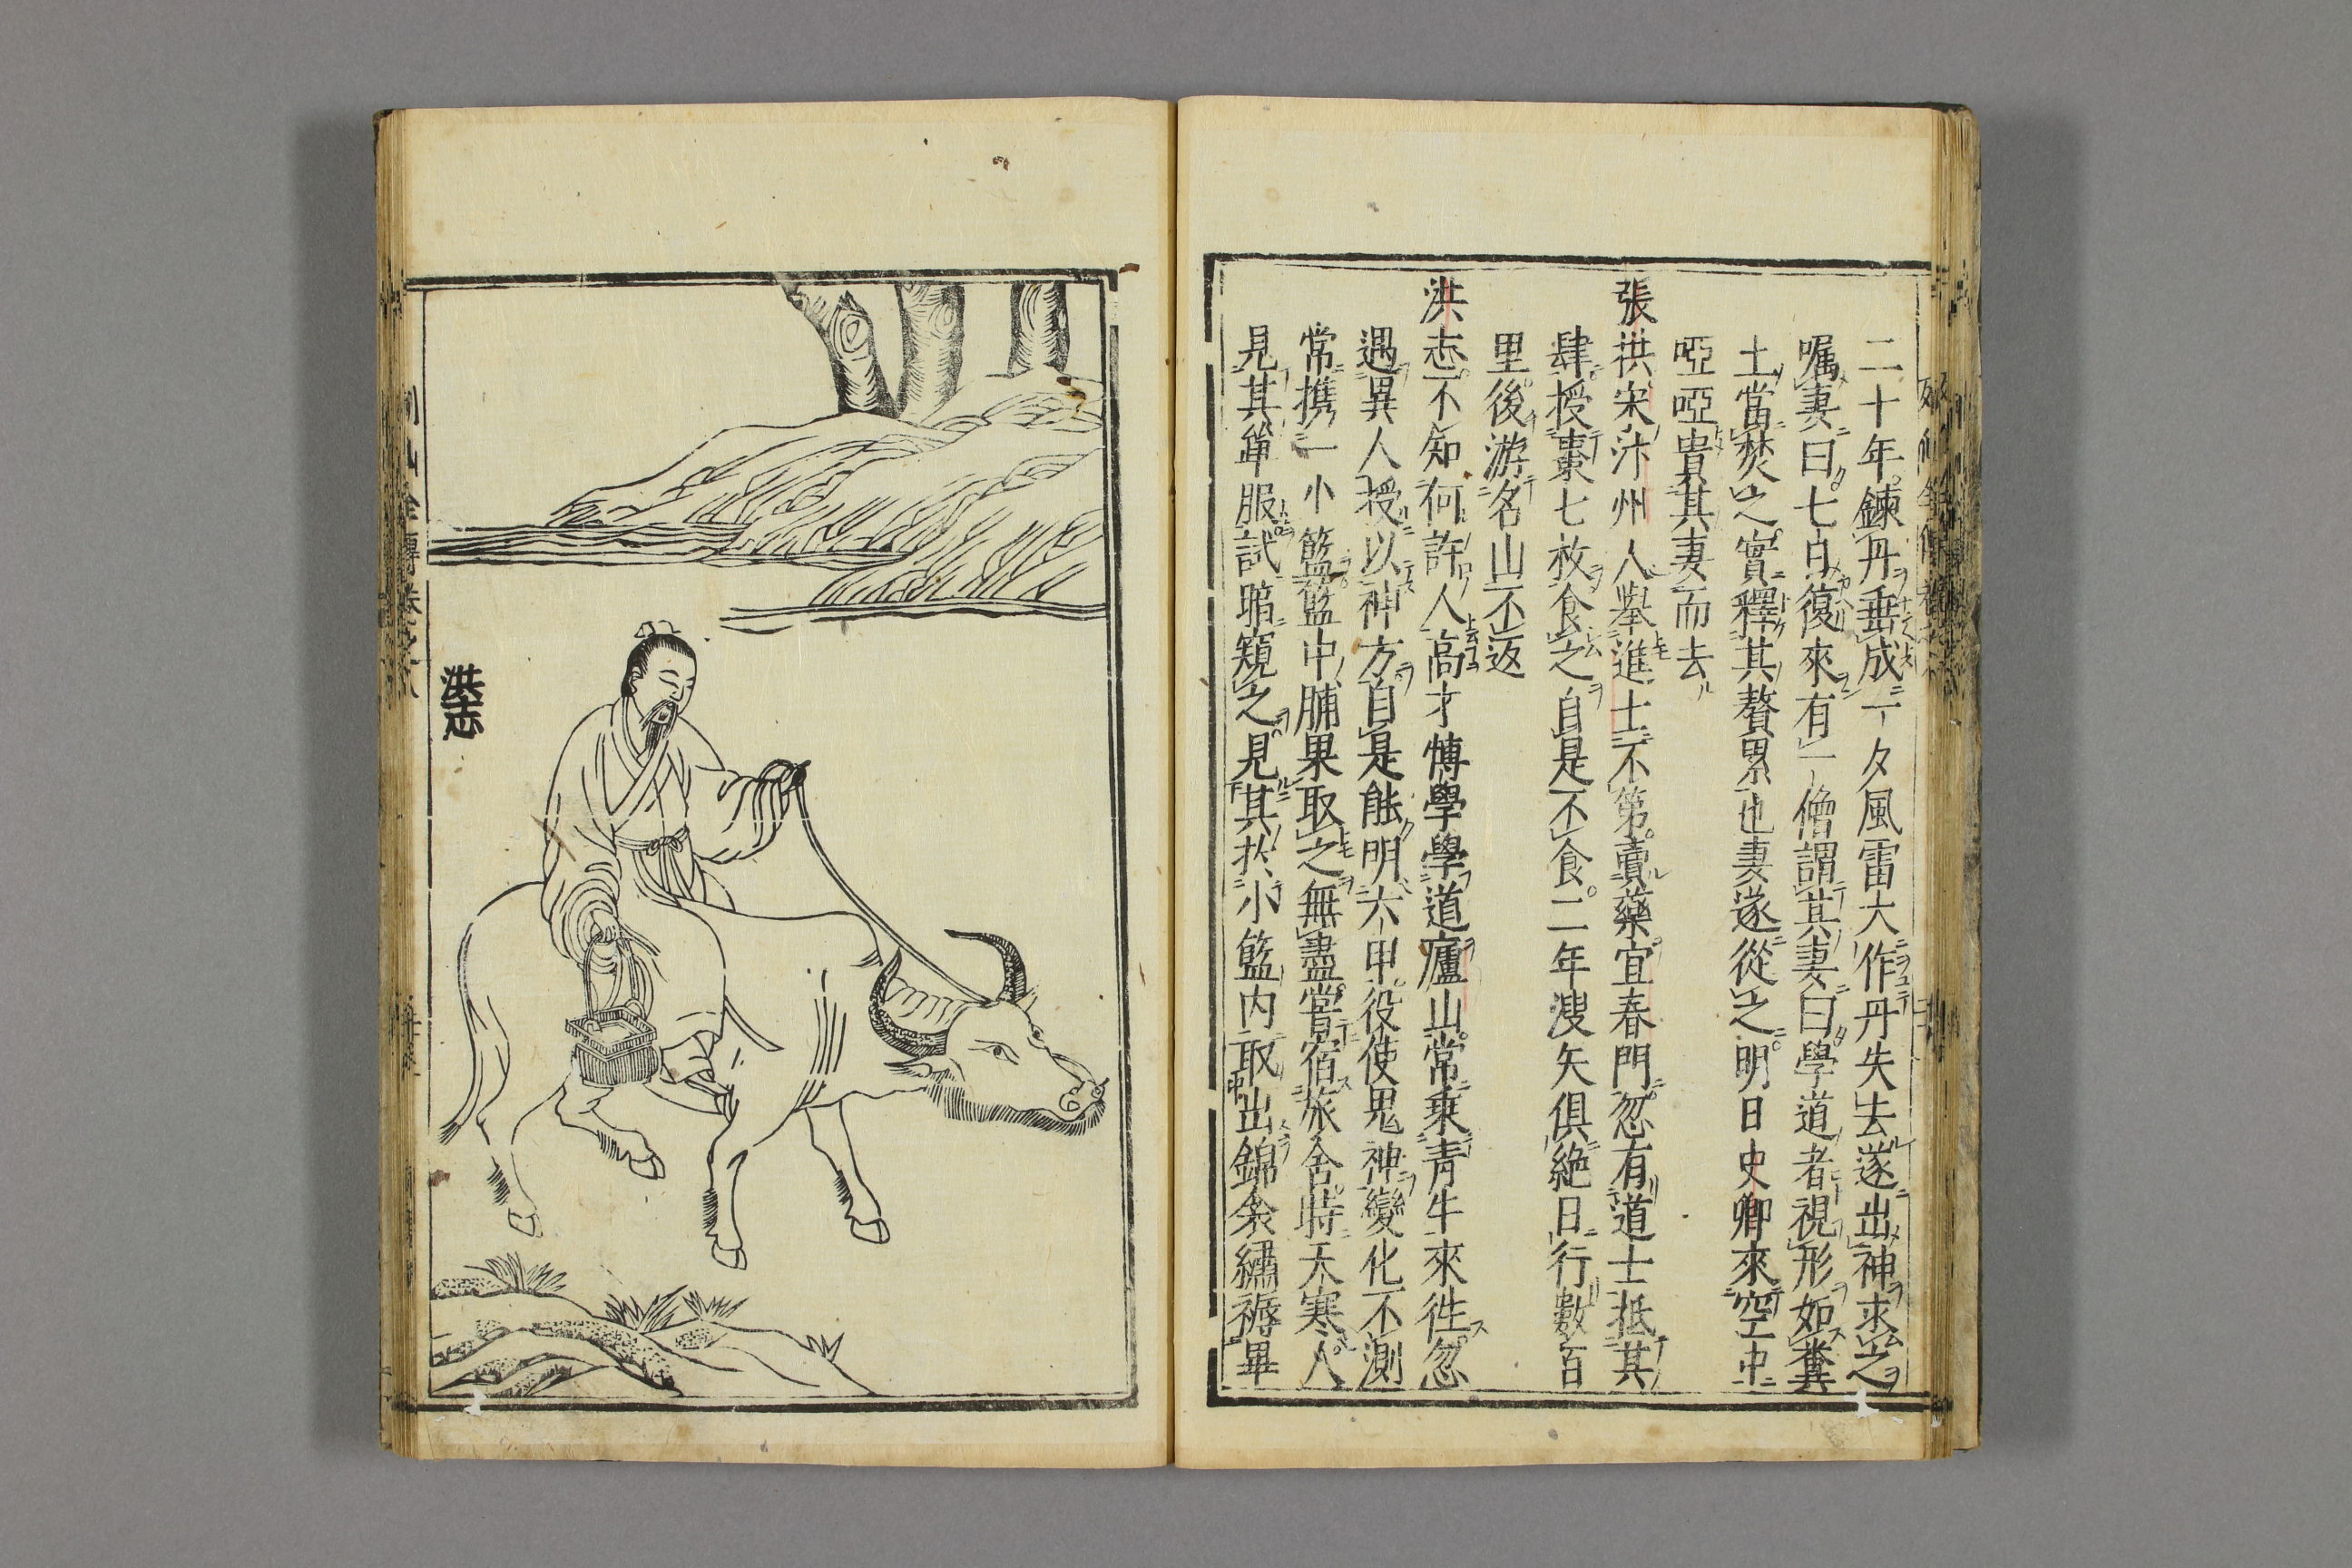 二十年鍊丹垂成一夕風雷大作丹失去遂出神求之
囑妻曰七日復來有一僧謂其妻曰學道者視形如糞
土當焚之實釋其贅累也妻遂從之明日史卿來空中
啞啞責其妻而去
張拱宋汴州人舉進士不第賣藥宜春門忽有道士抵其
肆授棗七枚食之自是不食二年溲矢俱絶日行數百
里後游名山不返
洪志不知何許人高才博學學道廬山常乘青牛來徃忽
遇異人授以神方自是能明六甲役使鬼神變化不測
常携一小籃籃中脯果取之無盡嘗宿旅舍時天寒人
見其單服試暗窺之見其於小籃内取出錦衾繡褥畢
洪志